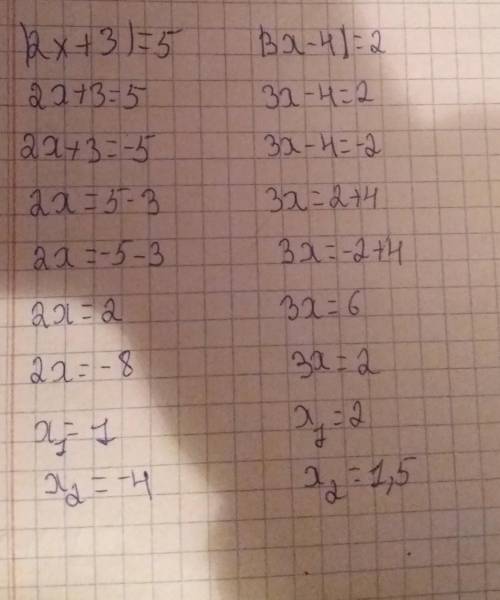 |2x+3|=5
2x+3=5
2x+3=-5
2x=5-3
2x=-5-3
2x=2
2x=-8
x₁=1
x₂=-4
|3x-4|=2
3x-4=2
3x-4=-2
3x=2+4
3x=-2+4
3x=6
3x=2
x₁=2
x₂=1,5